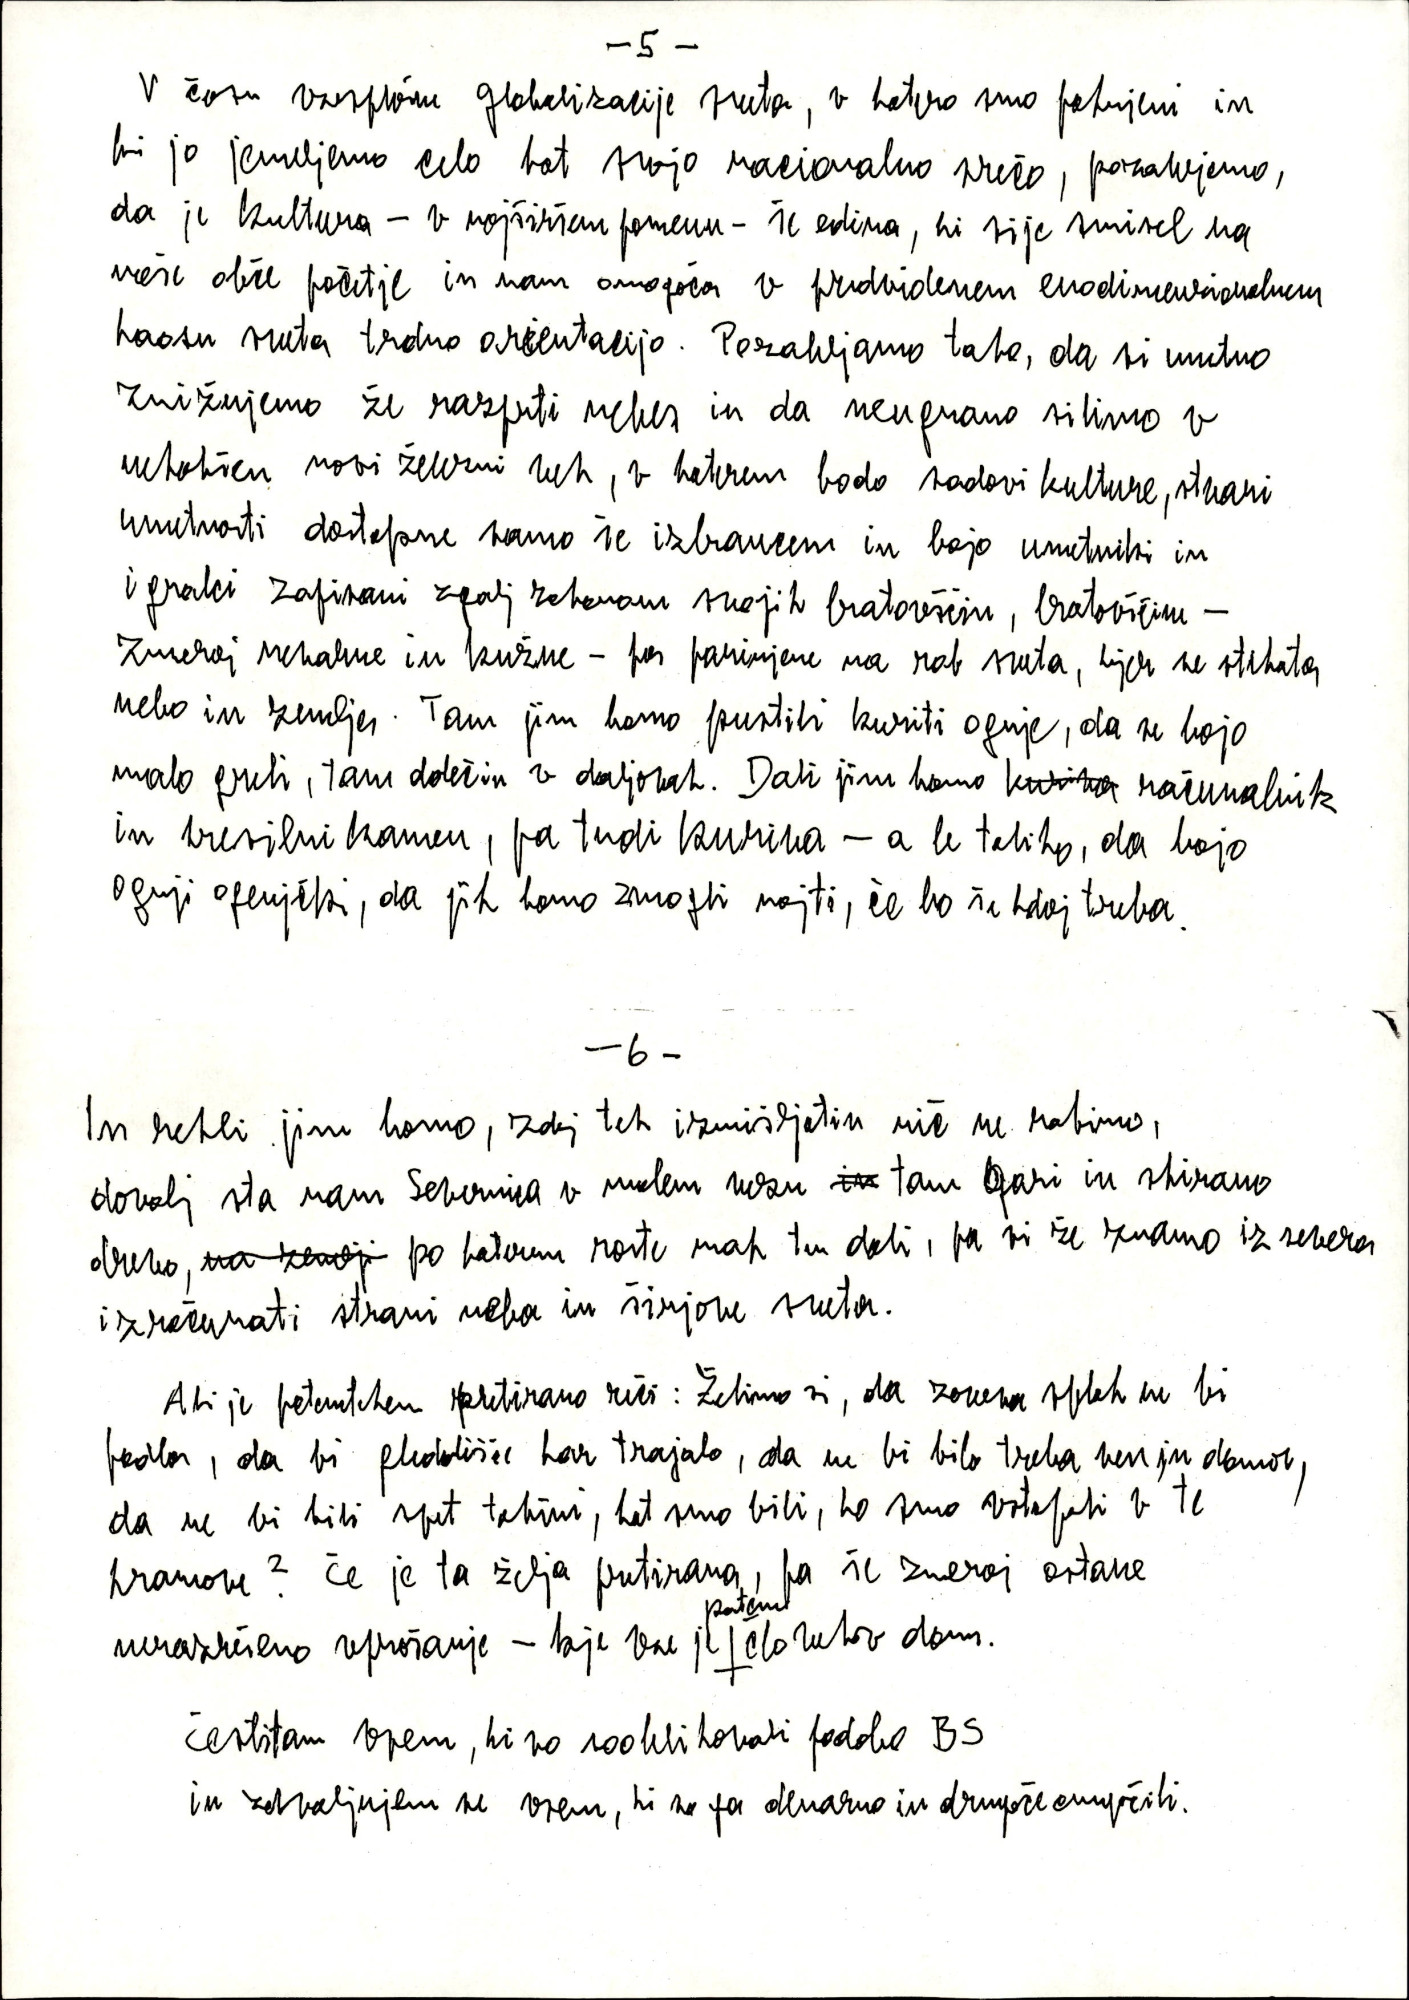 – 5 –
V času vsesplošne globalizacije sveta, v katero smo pahnjeni in
ki jo jemljemo celo kot svojo nacionalno srečo, pozabljamo,
da je kultura – v najširšem pomenu – še edina, ki sije smisel na
naše obče početje in nam omogoča v predvidenem enodimenzionalnem
kaosu sveta trdno orientacijo. Pozabljamo tako, da si umetno
znižujemo že razprti nebes in da neugnano silimo v
nekakšen novi železni vek, v katerem bodo sadovi kulture, stvari
umetnosti dostopne samo še izbrancem in bojo umetniki in
igralci zapisani zgolj zakonom svojih bratovščin, bratovščine –
zmeraj nevarne in kužne – pa porinjene na rob sveta, kjer se stikata
nebo in zemlja. Tam jim bomo pustili kuriti ognje, da se bojo
malo greli, tam daleč in v daljavah. Dali jim bomo kuriva računalnik
in kresilni kamen, pa tudi kuriva – a le toliko, da bojo
ognji ognjički, da jih bomo zmogli najti, če bo še kdaj treba.
– 6 –
In rekli jim bomo, zdaj teh izmišljotin nič ne rabimo,
dovolj sta nam Severnica v malem vozu in tam gori in skirano
drevo, na zemlji po katerem raste mah tu doli, pa si že znamo iz severa
izračunati strani neba in širjave sveta.
Ali je potemtakem pretirano reči: Želimo si, da zavesa sploh ne bi
padla, da bi gledališče kar trajalo, da ne bi bilo treba ven in domov,
da ne bi bili spet takšni, kot smo bili, ko smo vstopali v te
hramove? Če je ta želja pretirana, pa še zmeraj ostane
nerazrešeno vprašanje – kje vse je potem človekov dom.
Čestitam vsem, ki so sooblikovali podobo BS
in zahvaljujem se vsem, ki so ga denarno in drugače omogočili.